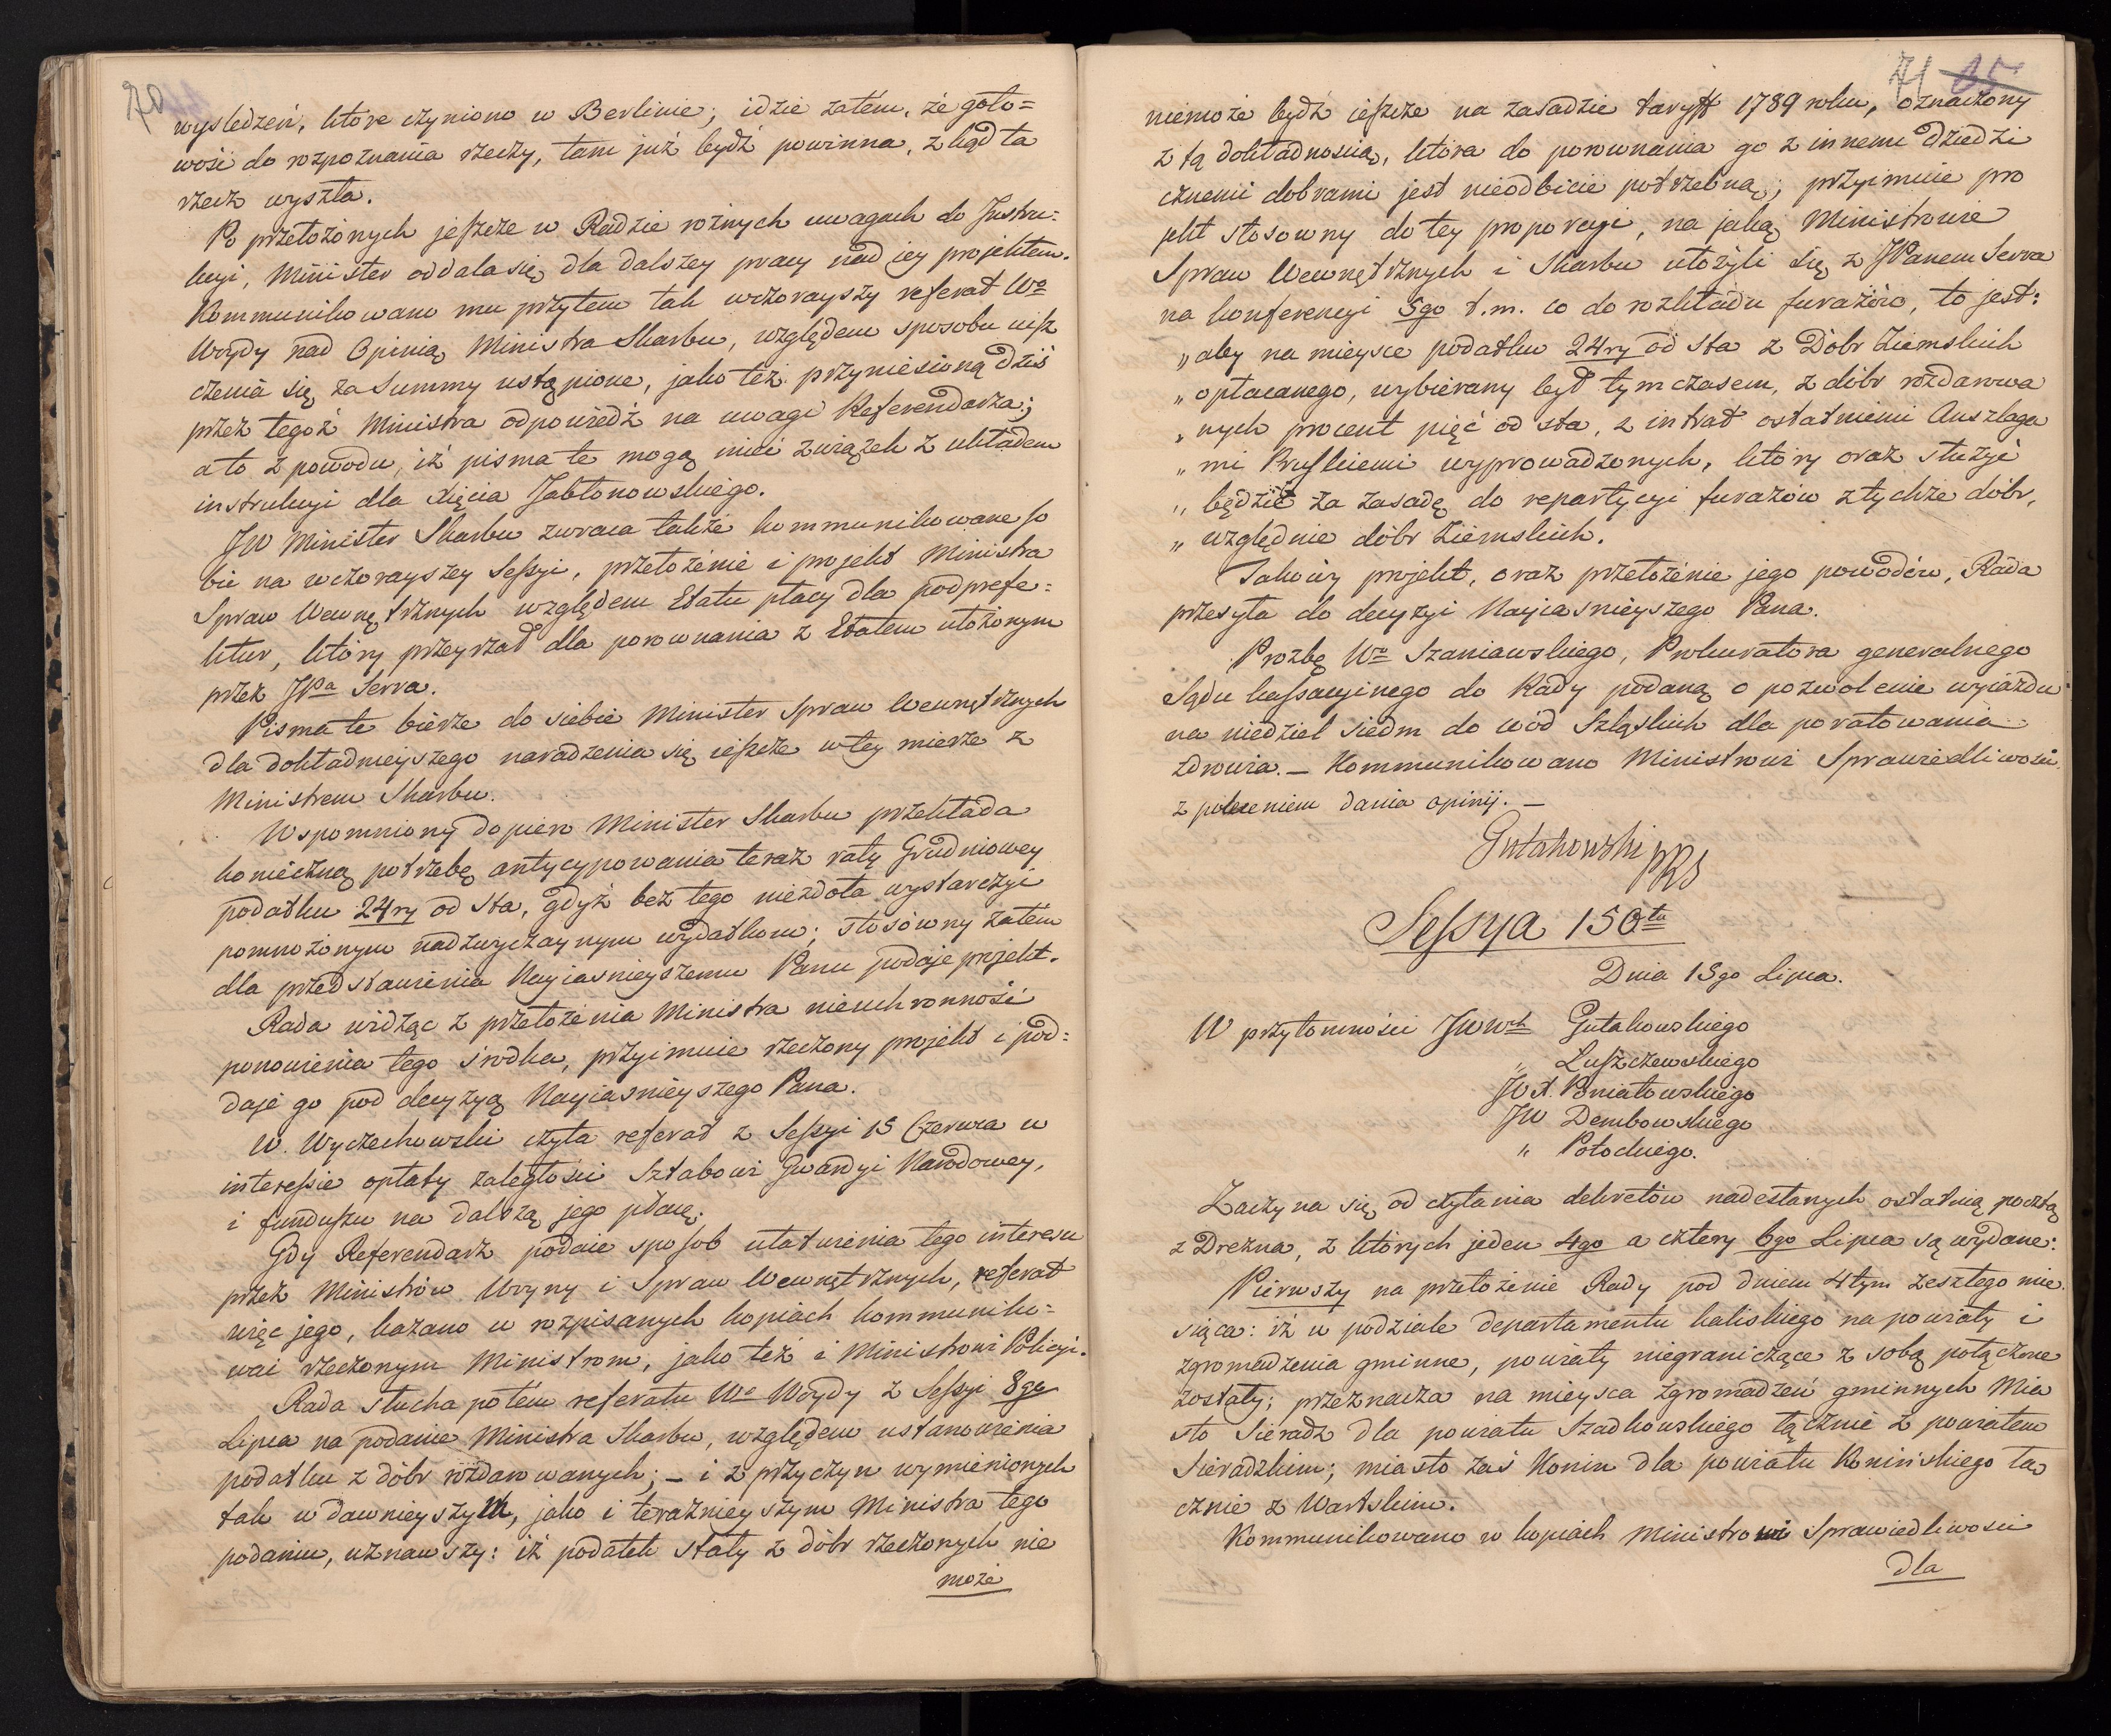 70
wysledzeń, które czyniono w Berlinie; idzie zatém, że goto=
wość do rozpoznania rzeczy, tam już bydź powinna, zkąd ta
rzecz wyszła.
Po przełożonych jeszcze w Radzie rożnych uwagach do Jnstru=
kcyi, Minister oddala się dla dalszey pracy nad jey projektem.
Kommunikowano mu przytem tak wczorayszy referat Wo
Woydy nad Opinią Ministra Skarbu, względem sposobu uisz
czenia się za Summy ustąpione, jako też przyniesioną dziś
przez tegoż Ministra odpowiedź na uwagi Referendarza;
a to z powodu, iż pisma te mogą mieć związek z układem
instrukcyi dla Xięcia Jabłonowskiego.
JW Minister Skarbu zwraca także kommunikowane so
bie na wczorayszey Sessyi, przełożenie i projekt Ministra
Spraw Wewnętrznych względem Etatu płacy dla podprefe=
ktur, który przeyrzał dla porownania z Etatem ułożonym
przez JPa Serra.
Pisma te bierze do siebie Minister Spraw Wewnętrznych
dla dokładnieyszego naradzenia się ieszcze w tey mierze z
Ministrem Skarbu.
Wspomniony dopiero Minister Skarbu przekłada
konieczną potrzebę antycypowania teraz raty Grudniowey
podatku 24ry od sta, gdyż bez tego niezdoła wystarczyć
pomnożonym nadzwyczaynym wydatkom; stosowny zatém
dla przedstawienia Nayiasnieyszemu Panu podaje projekt.
Rada widząc z przełożenia Ministra nieuchronność
ponowienia tego środka, przyimuie rzeczony projekt i pod=
daje go pod decyzyą Nayiasnieyszego Pana.
W. Wyczechowski czyta referat z Sessyi 15 Czerwca w
interessie opłaty zaległości Sztabowi Gwardyi Narodowey,
i funduszu na dalszą jego płacę.
Gdy Referendarz podaie sposob ułatwienia tego interesu
przez Ministrów Woyny i Spraw Wewnętrznych, referat
więc jego, kazano w rozpisanych kopiach kommuniko=
wać rzeczonym Ministrom, jako też i Ministrowi Policyi.
Rada słucha potém referatu Wo Woydy z Sessyi 8go
Lipca na podanie Ministra Skarbu, względem ustanowienia
podatku z dóbr rozdarowanych; – i z przyczyn wymienionych
tak w dawnieyszym, jako i teraźnieyszym Ministra tego
podaniu, uznawszy: iż podatek stały z dóbr rzeczonych nie
może
71 85
niemoże bydź ieszcze na zasadzie taryff 1789 roku, oznaczony
z tą dokładnością, która do porownania go z innemi Dziedzi
cznemi dobrami jest nieodbicie potrzebną; przyimuie pro
jekt stosowny do tey proporcyi, na jaką Ministrowie
Spraw Wewnętrznych i Skarbu ułożyli się z JPanem Serra
na konferencyi 5go t.m. co do rozkładu furażów, to jest:
„ aby na mieysce podatku 24ry od sta z Dóbr Ziemskich
„ opłacanego, wybierany był tymczasem, z dóbr rozdarowa
„ nych procent pięć od sta, z intrat ostatniemi Anszlaga
„ mi Pruskiemi wyprowadzonych, który oraz służyć
„ będzie za zasadę do repartycyi furażów z tychże dóbr,
„ względnie dóbr Ziemskich.
Takowy projekt, oraz przełożenie jego powodów, Rada
przesyła do decyzyi Nayiasnieyszego Pana.
Prozbę Wo Szaniawskiego, Prokuratora generalnego
Sądu kassacyinego do Rady podaną o pozwolenie wyiazdu
na niedziel siedm do wód Szląskich dla poratowania
zdrowia. – Kommunikowano Ministrowi Sprawiedliwości
z poleceniem dania opinij. –
Gutakowski PRS
Sessya 150ta
Dnia 15go Lipca.
W przytomności JWWch Gutakowskiego
„ Luszczewskiego
JO X. Poniatowskiego
JW Dembowskiego
„ Potockiego.
Zaczyna się od czytania dekretów nadesłanych ostatnią pocztą
z Drezna, z których jeden 4go a cztery 6go Lipca są wydane:
Pierwszy na przełożenie Rady pod dniem 4tym zeszłego mie
siąca: iż w podziale departamentu kaliskiego na powiaty i
zgromadzenia gminne, powiaty niegraniczące z sobą połączone
zostały; przeznacza na mieysca zgromadzeń gminnych Mia
sto Sieradz dla powiatu Szadkowskiego łącznie z powiatem
Sieradzkim; miasto zaś Konin dla powiatu Konińskiego łą
cznie z Wartskim.
Kommunikowano w kopiach Ministrowi Sprawiedliwości
dla